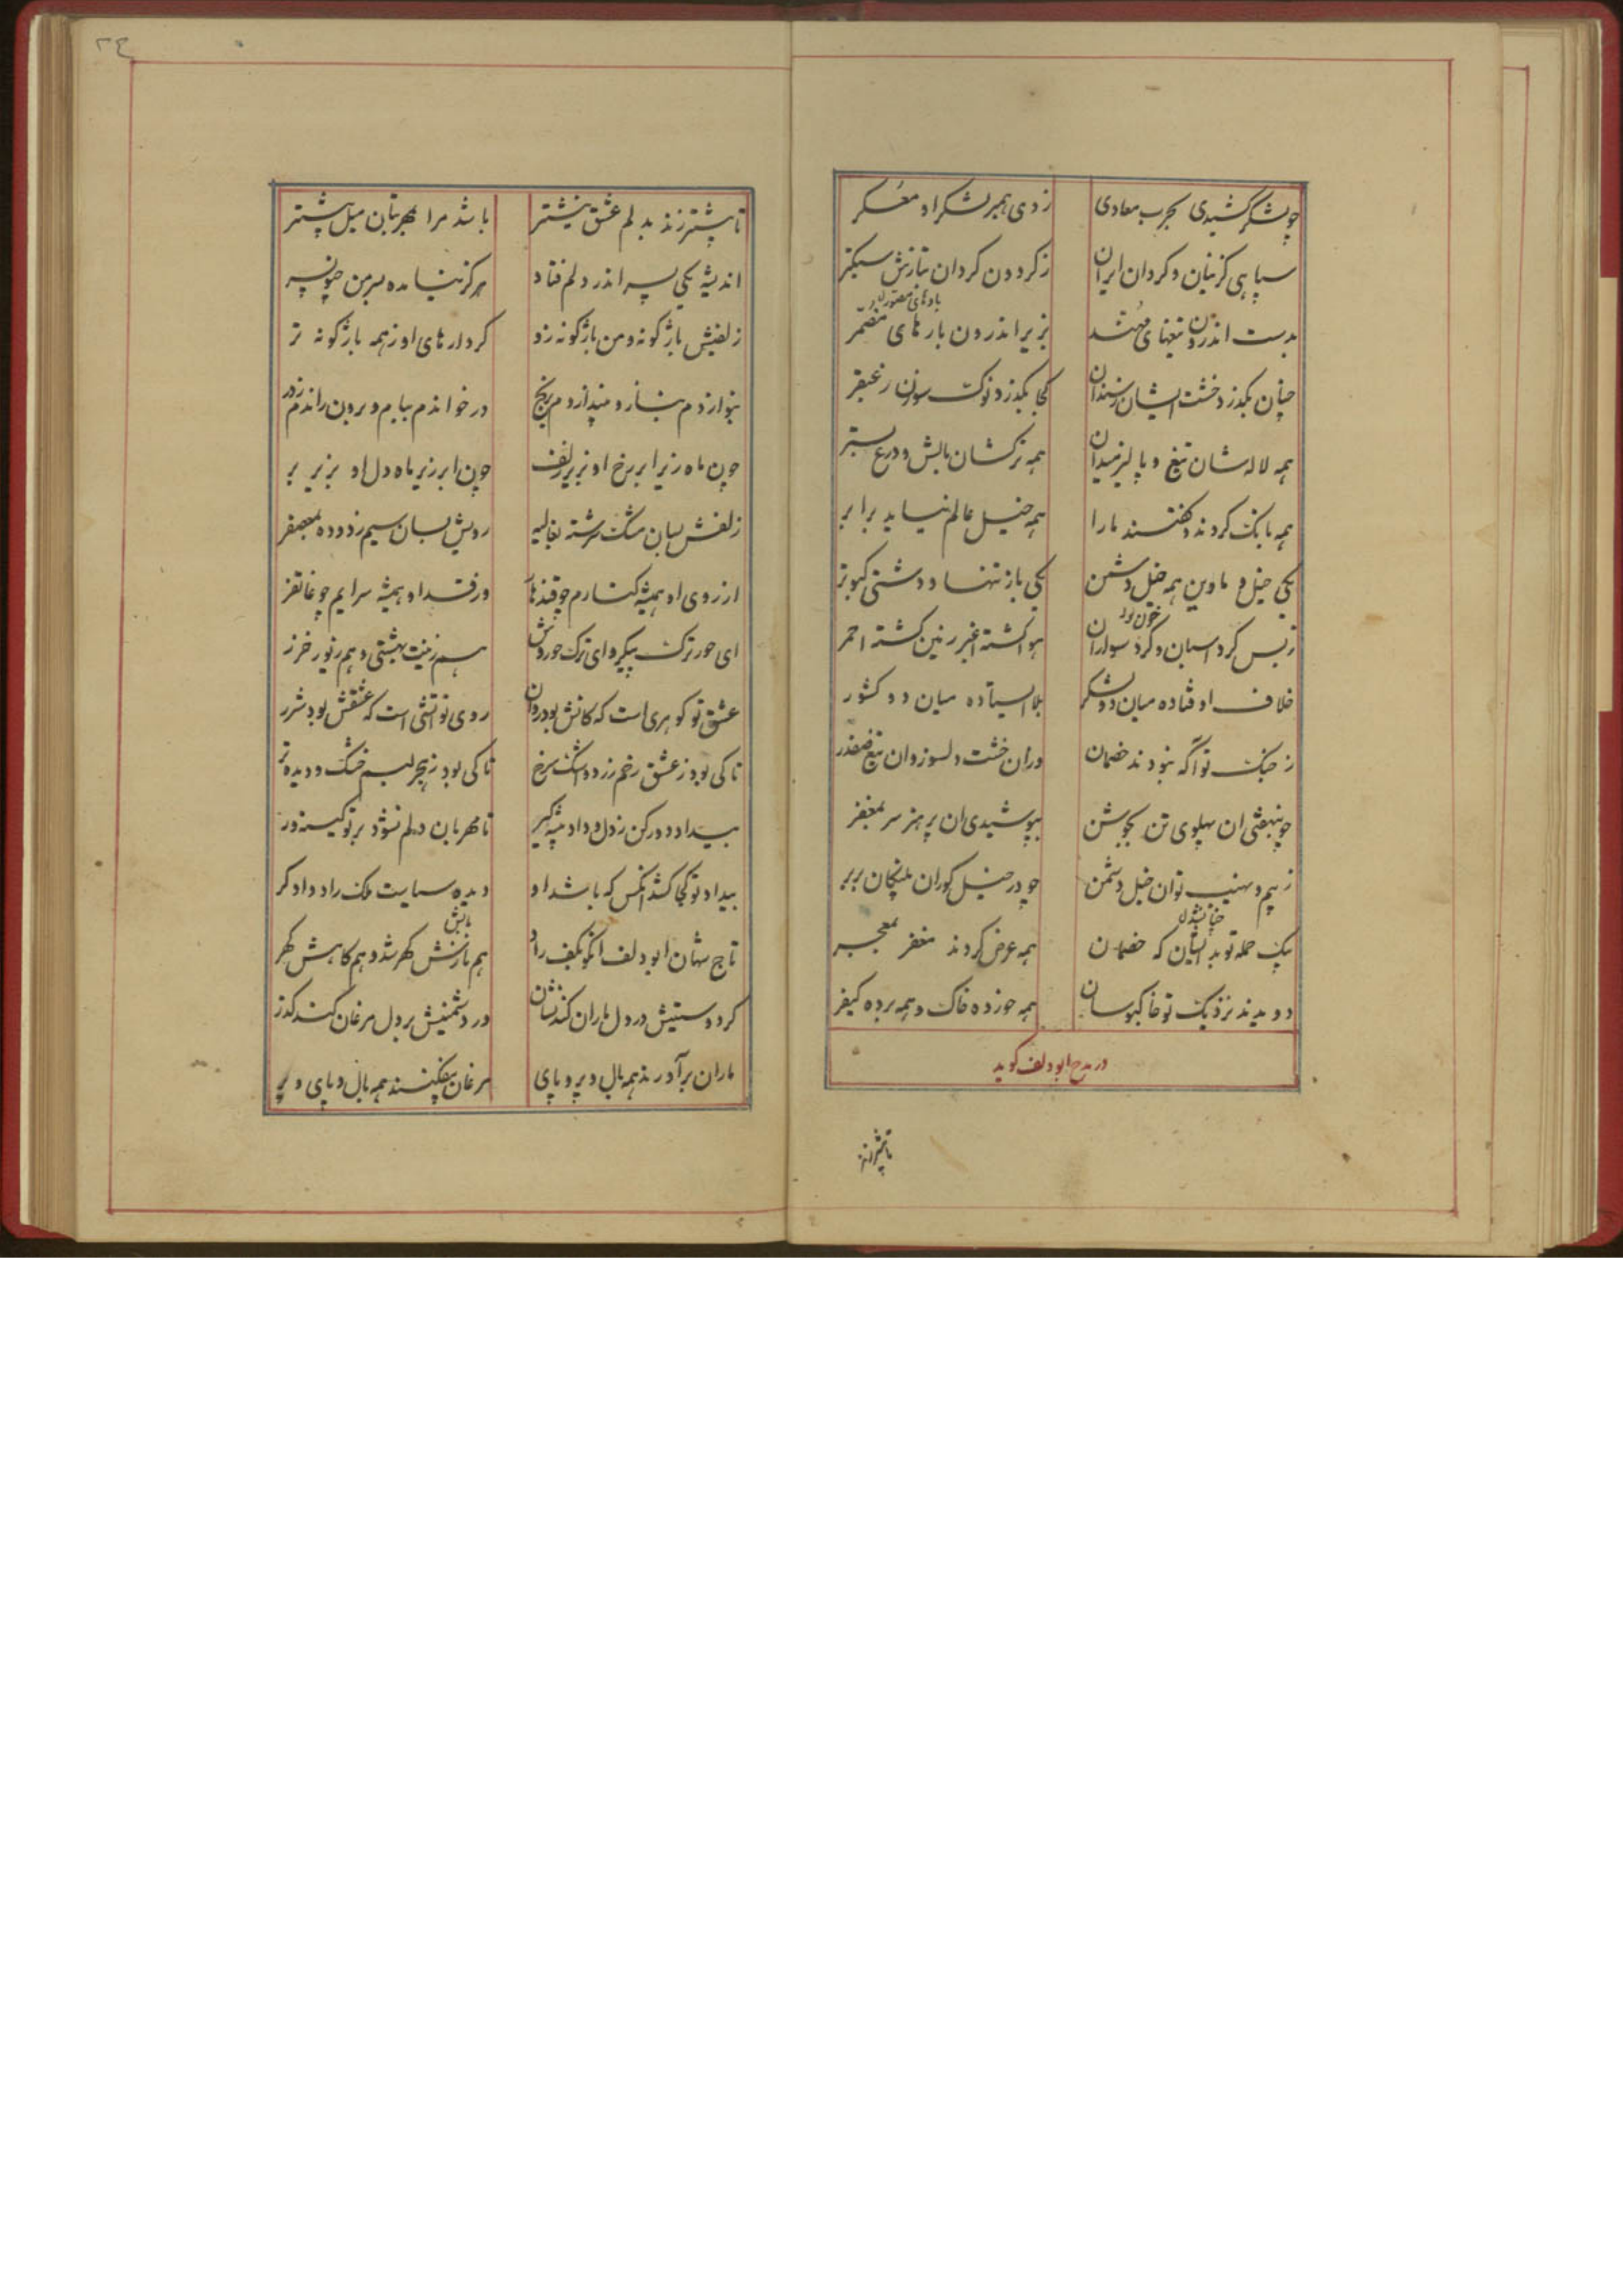 چو لشکر کشیدی بحرب معادی
زدی همبر لشکر او معسکر
سپاهی گزینان و گردان ایران
ز گردون گردان بتازش سبکتر
بدست اندرون تیغهای مهند
بزیر اندرون بارهای مضمر
بادهای مصور
چنان بگذرد خشت ایشان ز سندان
کجا بگذرد نوک سوزن ز عبقر
همه لاله شان تیغ و پالیز میدان
همه ترکشان بالش و درع بستر
همه بانگ کردند و گفتند ما را
همه خیل عالم نیاید برابر
یکی خیل و ما وین همه خیل دشمن
یکی باز تنها و دشتی کبوتر
ز بس گرد اسبان و گرد سواران
خون
هوا گشته اغبر زمین گشته احمر
خلاف اوفتاده میان دو لشکر
بلا ایستاده میان دو کشور
ز جنگ تو آگه نبودند خصمان
وزان خشت دلسوز وان تیغ صفدر
چو بنهفتی ان پهلوی تن بجوشن
بپوشیدی ان پر هنر سر بمغفر
ز بیم و نهیب توان خیل دشمن
چو در خیل گوران پلنگان بربر
بیک حمله تو بد ایشان که خصمان
چنان شد
همه عرض کردند مغفر بمعجر
دویدند نزدیک تو خاکبوسان
همه خورده خاک و همه برده کیفر
در مدح ابودلف گوید
تا بیشتر زند
٢٤
تا بیشتر زند بدلم عشق نیشتر
باشد مرا بمهر بتان میل بیشتر
اندیشه یکی پسر اندر دلم فتاد
هرگز نیامده بسر من چون پسر
زلفینش باژگونه و من باژگونه زو
کردارهای او ز همه باژگونه تر
بنوازدم بناز و بیندازدم برنج
در خواندم ببام و برون راندم ز در
چون ماه زیر ابر رخ او بزیر زلف
چون ابر زیر ماه دل او بزیر بر
زلفش بسان مشک سرشته بغالیه
رویش بسان سیم زدوده بمعصفر
از روی او همیشه کنارم چو قندهار
وز قد او همیشه سرایم چو غاتفر
ای حور ترک پیکر و ای ترک حوروش
هم زینت بهشتی و هم زیور خزر
عشق تو گوهری است که کانش بود روان
روی تو آتشی است که عشقش بود شرر
تا کی بود ز عشق رخم زرد و اشک سرخ
تا کی بود ز هجر لبم خشک و دیده تر
بیداد دور کن ز دل و داد پیشه گیر
تا مهربان دلم نشود بر تو کینه ور
بیداد تو کجا کشد انکس که باشد او
دیده سیاست ملک راد دادگر
تاج شهان ابودلف انکو بکف راد
هم نازش گهر شد و هم کاهش گهر
بالش
گر دوستیش در دل ماران کند نشان
ور دشمنیش بر دل مرغان کند گذر
ماران برآورند همه بال و پر و پای
مرغان بیفکنند همه بال و پای و پر